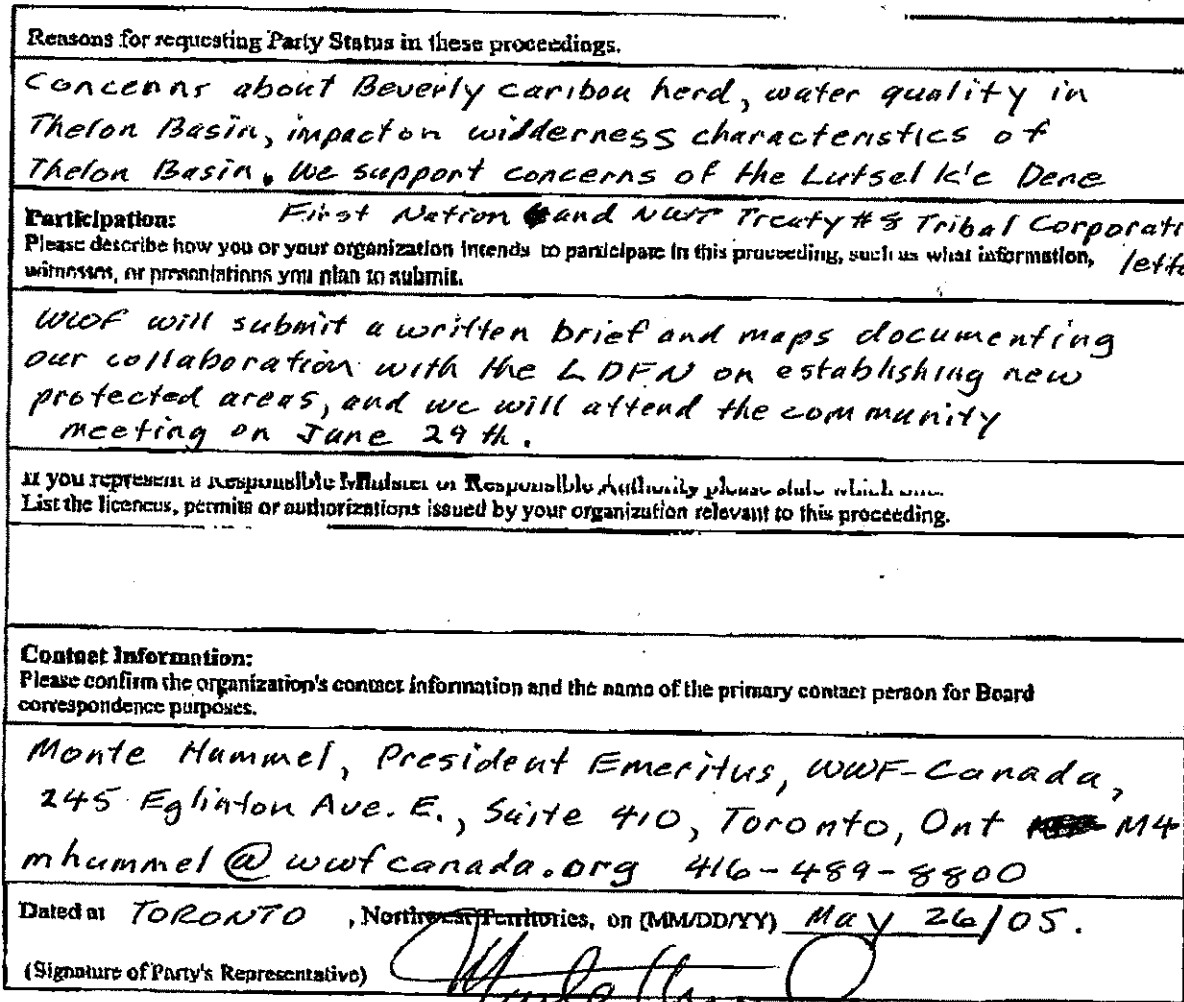 Reasons for requesting Party Status in these proceedings.
Concerns about Beverly caribou herd, water quality in
Thelon Basin, impact on wilderness characteristics of
Thelon Basin. We support concerns of the Lutsel K'e Dene
First Nation and NWT Treaty # 8 Tribal Corporati
Participation:
Please describe how you or your organization intends to participate in this proceeding, such as what information,
witnesses, or presentations you plan to submit.
WWF will submit a written brief and maps documenting
our collaboration with the LDFN on establishing new
protected areas, and we will attend the community
meeting on June 29th.
If you represent a Responsible Minister or Responsible Authority please state which one.
List the licences, permits or authorizations issued by your organization relevant to this proceeding.
Contact Information:
Please confirm the organization's contact information and the name of the primary contact person for Board
correspondence purposes.
Monte Hummel, President Emeritus, WWF-Canada,
245 Eglinton Ave. E., Suite 410, Toronto, Ont M4
mhummel@wwfcanada.org 416-489-8800
Dated at TORONTO, Northwest Territories, on (MM/DD/YY) May 26/05.
(Signature of Party's Representative)